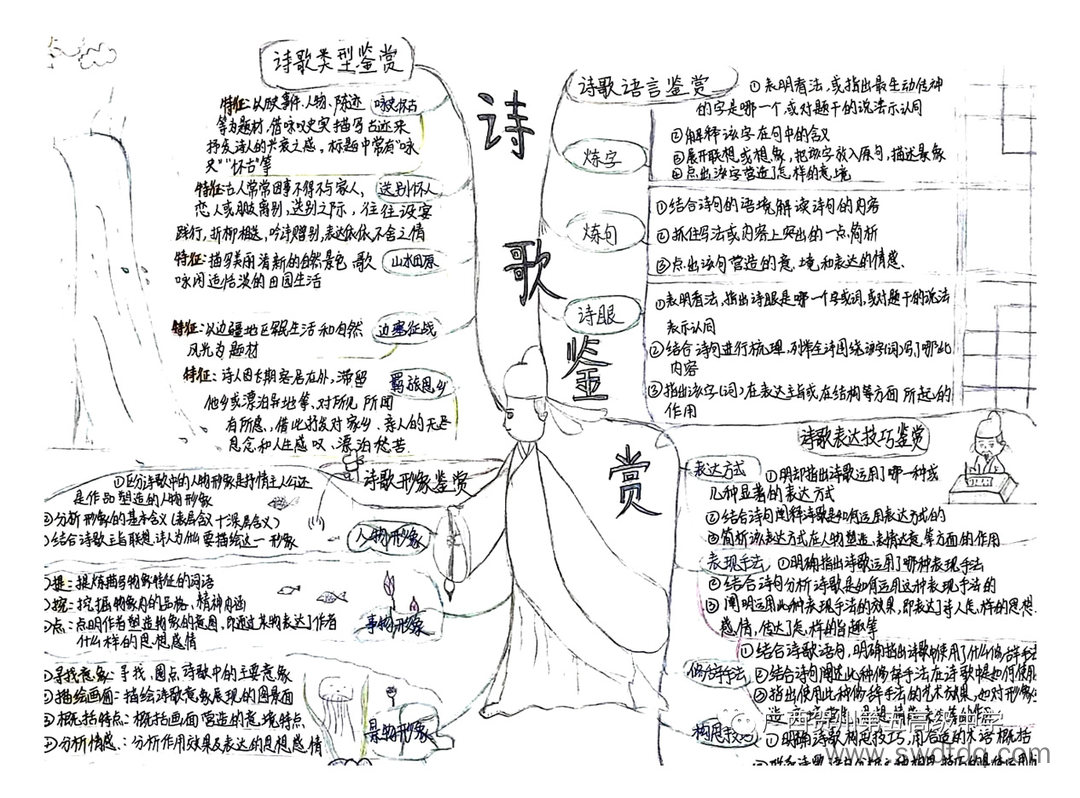 诗歌鉴赏
诗歌类型鉴赏
特征:以历史事件、人物、陈迹
咏史怀古
等为题材,借咏叹史实描写古迹来
抒发诗人的兴衰之感。标题中常有“咏
史”“怀古”等
特征:古人常常因事不得不与家人,
送别怀人
恋人或朋友离别,送别之际,往往设宴
践行,折柳相送,吟诗赠别,表达依依不舍之情
特征:描写美丽清新的自然景色,歌
山水田园
咏闲适恬淡的田园生活
特征:以边疆地区军民生活和自然
边塞征战
风光为题材
特征:诗人因长期客居在外,滞留
羁旅思乡
他乡或漂泊异地等、对所见所闻
有所感,借此抒发对家乡、亲人的无尽
思念和人生感叹、漂泊愁苦.
诗歌形象鉴赏
①区分诗歌中的人物形象是抒情主人公还
是作品塑造的人物形象
②分析形象的基本含义(表层含义+深层含义)
③结合诗歌主旨联想诗人为何要描绘这一形象
人物形象
①提:提炼描写物象特征的词语
②挖:挖掘物象内的品格、精神内涵
③点:点明作者塑造物象的意图,即通过某物表达了作者
什么样的思想感情
事物形象
①寻找意象:寻找、圈点诗歌中的主要意象
②描绘画面:描绘诗歌意象展现的图景画面
③概括特点:概括画面营造的意境特点
④分析情感:分析作用效果及表达的思想感情
景物形象
诗歌语言鉴赏
①表明看法,或指出最生动传神
的字是哪一个,或对题干的说法示认同
炼字
②解释该字在句中的含义
③展开联想或想象,把该字放入原句,描述景象
④点出该字营造了怎样的意境
炼句
①结合诗句的语境解读诗句的内容
②抓住写法或内容上突出的一点,简析
③点出该句营造的意境和表达的情感.
诗眼
①表明看法,指出诗眼是哪一个字或词,或对题干的说法
表示认同
②结合诗句进行梳理,列举全诗围绕该字(词)写了哪些
内容
③指出该字(词)在表达主旨或在结构等方面所起的
作用
诗歌表达技巧鉴赏
表达方式
①明却指出诗歌运用了哪一种或
几种显著的表达方式
②结合诗句阐释诗歌是如何运用表达方式的
③简析该表达方式在人物塑造、表情达意等方面的作用
表现手法
①明确指出诗歌运用了哪种表现手法
②结合诗句分析诗歌是如何运用这种表现手法的
③阐明运用此种表现手法的效果,即表达了诗人怎样的思想
感情,传达了怎样的旨趣等
修辞手法
①结合诗歌语句,明确指出诗歌使用了什么修辞手法
②结合诗句阐述此种修辞手法在诗歌中是如何使用
③指出使用此种修辞手法的艺术效果,如对形象
构思技巧
①明确诗歌构思技巧,用合适的术语概括
广西钦州第五高级中学
www.swdtdq.com